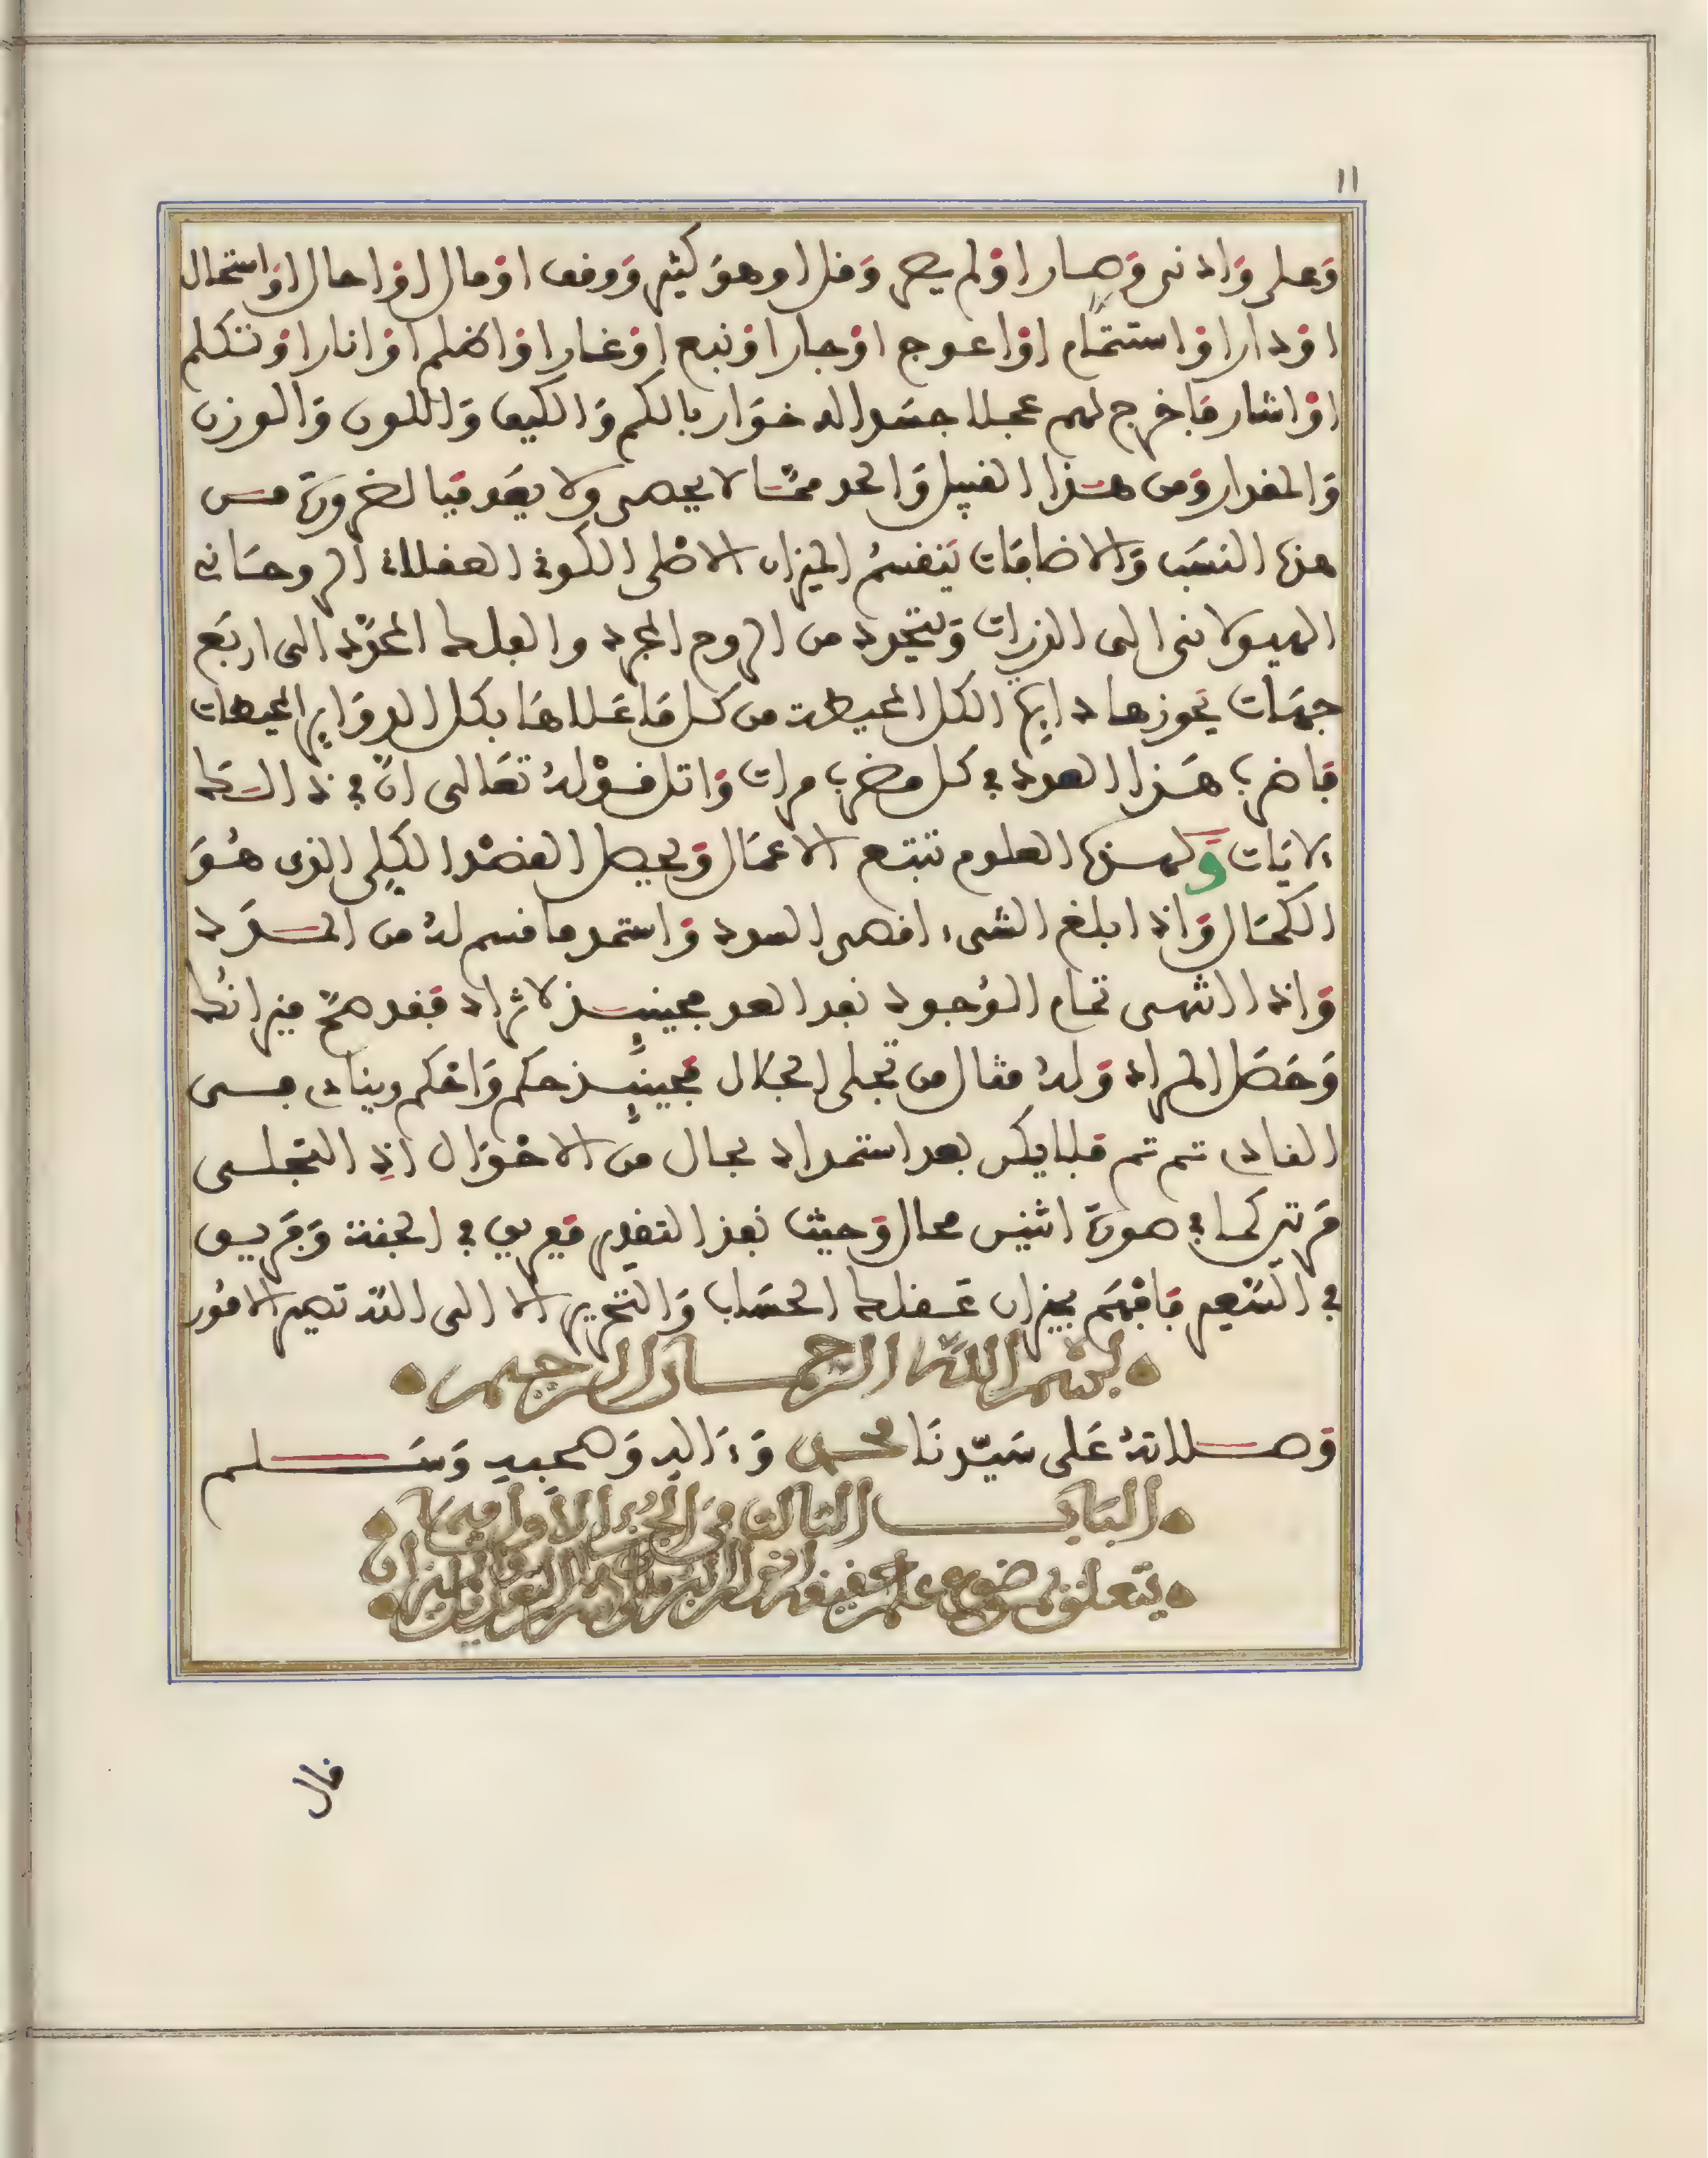 ١١
وعلى وادنى وصار او لم يصر وقل او هو كثير ووقف او مال او احال او استحال
او دار او استقام او اعوج او جار او نبع او غار او اظلم او انار او تكلم
او اشار فاخرج لهم عجلا جسدا له خوار بالكم والكيف واللون والوزن
والمقدار ومن هذا القبيل والحد ممّا لا يحصى ولا يعد فبالضرورة من
هذه النسب والاضافات ينقسم الميزان الاصلى الكرة العقلاة الروحانى
الهيولانى الى الذرات ويتجرد من الروح المجرد والعلم المجرّد الى اربع
جهات يحوزها دايرة الكل المحيطة من كل ما علاها بكل الدواير المحيطات
فاضرب هذا العدد في كل مضرب مرات واتل قوله تعالى انّ في ذالك
لايات ولهذه العلوم تتبع الاعمال ويحصل القصد الكلى الذى هو
الكمال واذا بلغ الشىء اقصى السدد واستمد ما قسم له من المدد
واذا انتهى تمام الوجود نفد العد فحينئذ لا يزاد فقد صحّ ميزانك
وحصل المراد وله مثال من تجلى الجلال فحينئذ حكم واحكم وينادى مسى
الفادى تم تم فلا يكن بعد استمداد بحال من الاحوال اذ التجلى
مرتين كما في صورة اثنين محال وحيث نفذ التقدير ففريق في الجنة وفريق
في السعير فافهم بميزان عقلك الحساب والتحرير الا الى الله تصير الامور
بسم الله الرحمان الرحيم
وصلاته على سيّدنا محمد وءاله وصحبه وسلم
الباب الثالث من الجزء الاول فيما
يتعلق بموضوع علم الميزان
قال